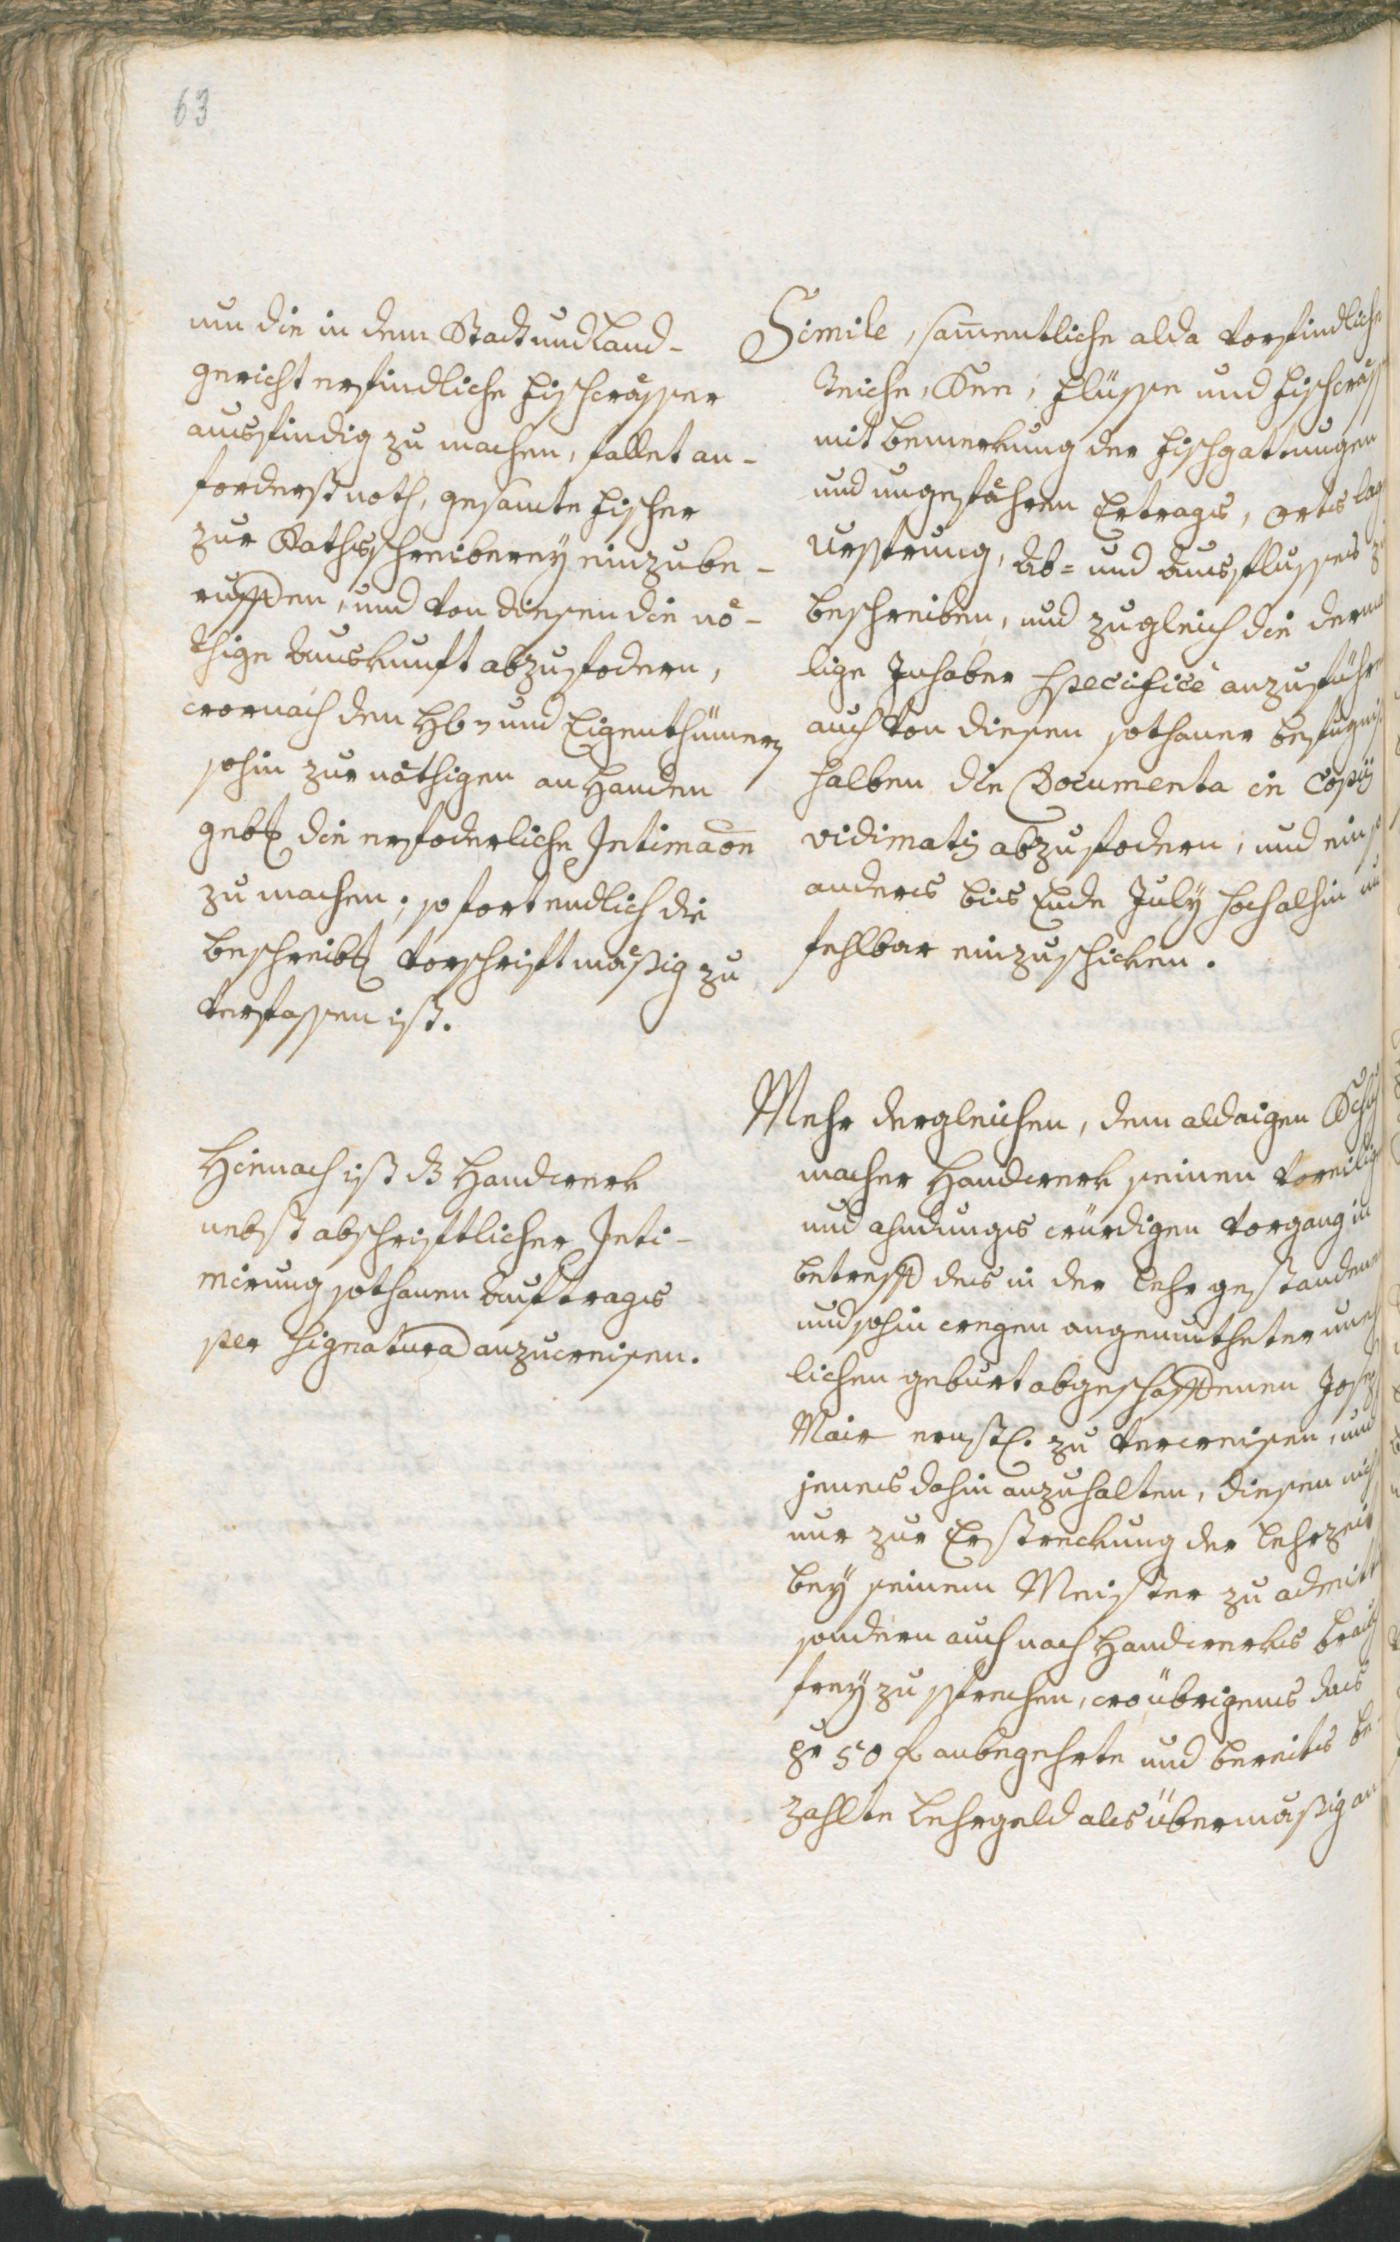 63
um die in dem Stadt und Land-
gericht erfindliche Fischwässer
ausfindig zu machen, fallet an-
forderst noth, gesamte Fischer
zur Rathsschreiberey einzube-
ruffen, und von diesen die nö-
thige Auskunft abzufodern,
wornach den und Eigenthümern
sohin zur nöthigen an Handen
gebg die erfoderliche Intimaon
zu machen, sofort endlich die
beschreibg vorschriftmäßig zu
verfassen ist.
Hienach ist dz Handwerk
nebst abschriftlicher Inti-
mirung sothanen Auftrags
per Signatura anzuweisen.
Simile, sam̄entliche alda vorfindliche
Teiche, See, Flüsse und Fischwäss
mit bemerkung der Fischgattungen
und ungefähren Ertrags, Orts lag
Ursprung, Ab- und Ausflusses zu
beschreiben, und zugleich die derma
lige Inhaber specificè anzuführen
auch von diesen sothaner befugnis
halben die Documenta in Copiis
vidimatis abzufodern, und ein so
anders bis Ende July hochalhin un
fehlbar einzuschicken.
Mehr dergleichen, dem aldaigen Schuh
macher Handwerk seinen voreilig
und ahndungs würdigen Vorgang in
betreff des in der Lehr gestandenen
und sohin wegen angemutheter uneh
lichen geburt abgeschaffenen Joseph
Mair ernstl. zu verweisen, und
jenes dahin anzuhalten, diesen nicht
nur zur Erstreckung der Lehrzeit
bey seinem Meister zu admitt
sondern auch nach Handwerks brauch
frey zu sprechen, wo übrigens das
pr 50 f anbegehrte und bereits be-
zahlte Lehrgeld als übermäßig an